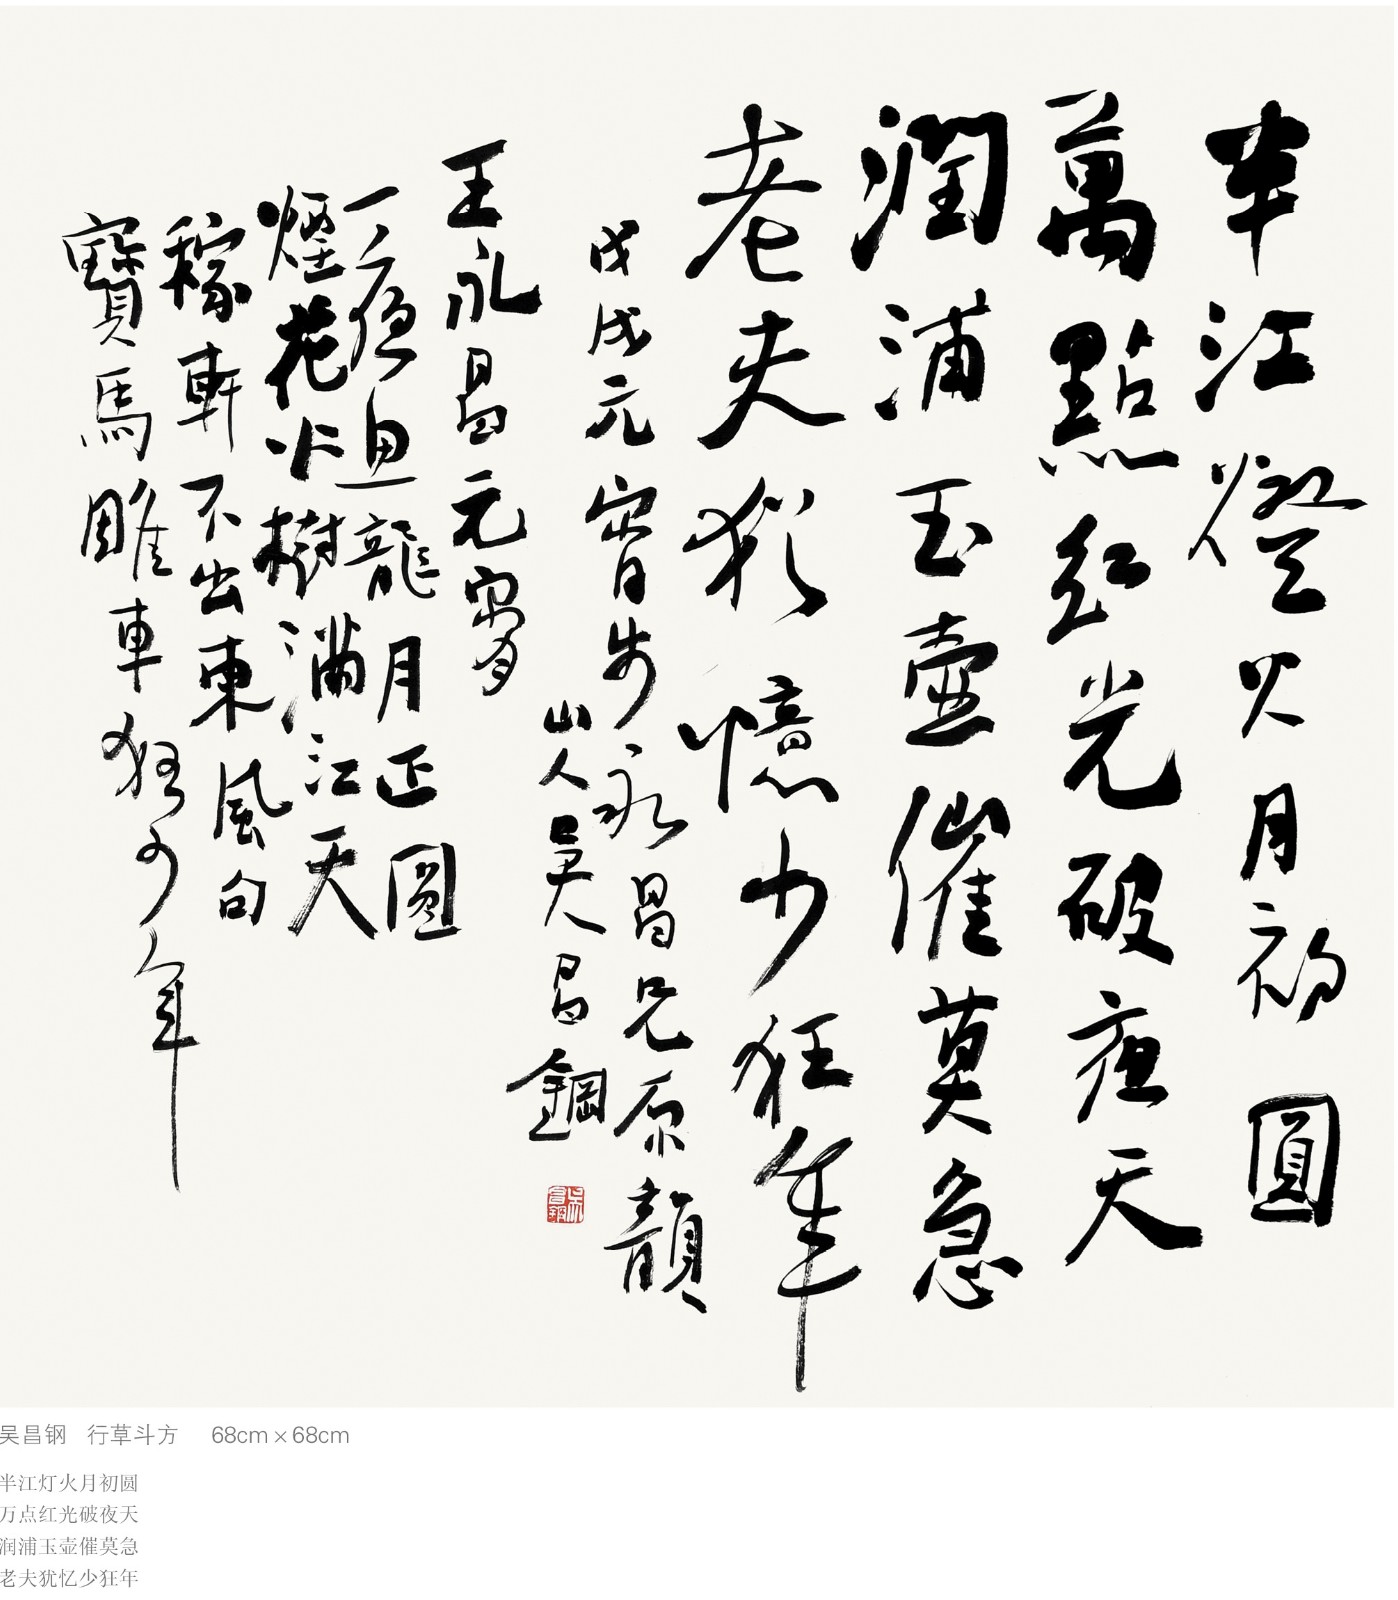 半江燈火月初圓
萬點紅光破夜天
潤浦玉壺催莫急
老夫猶憶少狂年
戊戌元宵步永昌兄原韻
山人吳昌鋼
王永昌元宵
一夜魚龍月正圓
煙花火樹滿江天
稼軒不出東風句
寶馬雕車狂少年
吴昌钢 行草斗方 68cm×68cm
半江灯火月初圆
万点红光破夜天
润浦玉壶催莫急
老夫犹忆少狂年